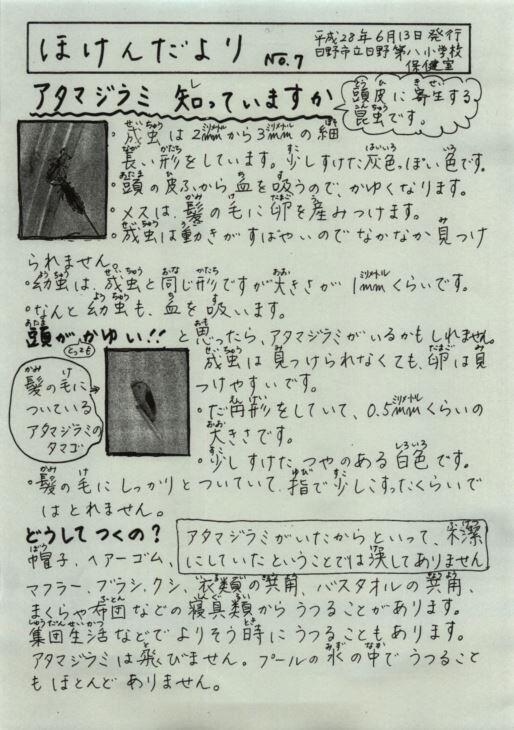 ほけんだより No.7
平成28年6月13日発行
日野市立日野第八小学校
保健室
アタマジラミ 知っていますか
頭皮に寄生する
昆虫です。
・成虫は2mmから3mmの細
長い形をしています。少しすけた灰色っぽい色です。
・頭の皮ふから血を吸うので、かゆくなります。
・メスは、髪の毛に卵を産みつけます。
・成虫は動きがすばやいのでなかなか見つけ
られません。
・幼虫は、成虫と同じ形ですが大きさが1mmくらいです。
・なんと幼虫も、血を吸います。
頭がかゆい!! と思ったら、アタマジラミがいるかもしれません。
とっても
成虫は見つけられなくても、卵は見
つけやすいです。
髪の毛に
ついている
アタマジラミの
タマゴ
・だ円形をしていて、0.5mmくらいの
大きさです。
・少しすけた、つやのある白色です。
・髪の毛にしっかりとついていて、指で少しこすったくらいで
はとれません。
どうしてつくの?
アタマジラミがいたからといって、不潔
にしていたということでは決してありません
帽子、ヘアーゴム、
マフラー、ブラシ、クシ、衣類の共用、バスタオルの共用、
まくらや布団などの寝具類からうつることがあります。
集団生活などでよりそう時にうつることもあります。
アタマジラミは飛びません。プールの水の中でうつること
もほとんどありません。